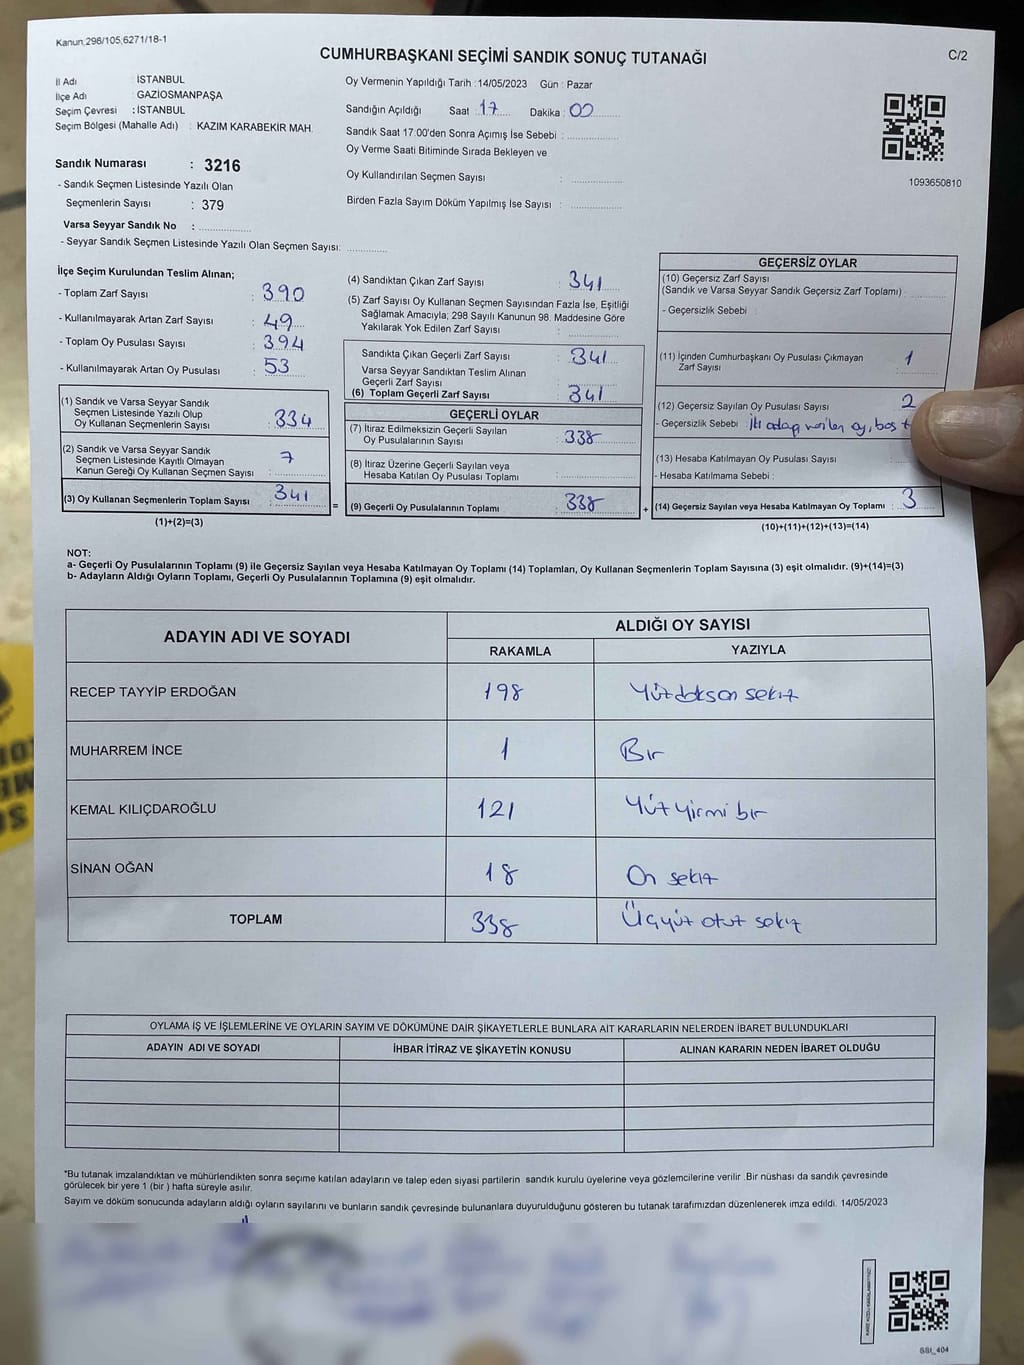 Kanun,298/105,6271/18-1
CUMHURBAŞKANI SEÇİMİ SANDIK SONUÇ TUTANAĞI
C/2
İl Adı : İSTANBUL
İlçe Adı : GAZİOSMANPAŞA
Seçim Çevresi : İSTANBUL
Seçim Bölgesi (Mahalle Adı) : KAZIM KARABEKİR MAH.
Sandık Numarası : 3216
- Sandık Seçmen Listesinde Yazılı Olan
Seçmenlerin Sayısı : 379
Varsa Seyyar Sandık No :
- Seyyar Sandık Seçmen Listesinde Yazılı Olan Seçmen Sayısı:
Oy Vermenin Yapıldığı Tarih : 14/05/2023 Gün : Pazar
Sandığın Açıldığı Saat 17 Dakika : 00
Sandık Saat 17:00'den Sonra Açımış İse Sebebi :
Oy Verme Saati Bitiminde Sırada Bekleyen ve
Oy Kullandırılan Seçmen Sayısı :
Birden Fazla Sayım Döküm Yapılmış İse Sayısı :
1093650810
İlçe Seçim Kurulundan Teslim Alınan;
- Toplam Zarf Sayısı : 390
- Kullanılmayarak Artan Zarf Sayısı : 49
- Toplam Oy Pusulası Sayısı : 394
- Kullanılmayarak Artan Oy Pusulası : 53
(1) Sandık ve Varsa Seyyar Sandık
Seçmen Listesinde Yazılı Olup
Oy Kullanan Seçmenlerin Sayısı : 334
(2) Sandık ve Varsa Seyyar Sandık
Seçmen Listesinde Kayıtlı Olmayan
Kanun Gereği Oy Kullanan Seçmen Sayısı : 7
(3) Oy Kullanan Seçmenlerin Toplam Sayısı : 341
(1)+(2)=(3)
(4) Sandıktan Çıkan Zarf Sayısı : 341
(5) Zarf Sayısı Oy Kullanan Seçmen Sayısından Fazla İse, Eşitliği
Sağlamak Amacıyla; 298 Sayılı Kanunun 98. Maddesine Göre
Yakılarak Yok Edilen Zarf Sayısı :
Sandıkta Çıkan Geçerli Zarf Sayısı : 341
Varsa Seyyar Sandıktan Teslim Alınan
Geçerli Zarf Sayısı :
(6) Toplam Geçerli Zarf Sayısı : 341
GEÇERLİ OYLAR
(7) İtiraz Edilmeksizin Geçerli Sayılan
Oy Pusulalarının Sayısı : 338
(8) İtiraz Üzerine Geçerli Sayılan veya
Hesaba Katılan Oy Pusulası Toplamı :
= (9) Geçerli Oy Pusulalarının Toplamı : 338
GEÇERSİZ OYLAR
(10) Geçersiz Zarf Sayısı
(Sandık ve Varsa Seyyar Sandık Geçersiz Zarf Toplamı) :
- Geçersizlik Sebebi :
(11) İçinden Cumhurbaşkanı Oy Pusulası Çıkmayan
Zarf Sayısı : 1
(12) Geçersiz Sayılan Oy Pusulası Sayısı 2
- Geçersizlik Sebebi : İki adaya verilen oy, boş
(13) Hesaba Katılmayan Oy Pusulası Sayısı
- Hesaba Katılmama Sebebi :
+ (14) Geçersiz Sayılan veya Hesaba Katılmayan Oy Toplamı : 3
(10)+(11)+(12)+(13)=(14)
NOT:
a- Geçerli Oy Pusulalarının Toplamı (9) ile Geçersiz Sayılan veya Hesaba Katılmayan Oy Toplamı (14) Toplamları, Oy Kullanan Seçmenlerin Toplam Sayısına (3) eşit olmalıdır. (9)+(14)=(3)
b- Adayların Aldığı Oyların Toplamı, Geçerli Oy Pusulalarının Toplamına (9) eşit olmalıdır.
ADAYIN ADI VE SOYADI
ALDIĞI OY SAYISI
RAKAMLA YAZIYLA
RECEP TAYYİP ERDOĞAN 198 Yüzdoksan sekiz
MUHARREM İNCE 1 Bir
KEMAL KILIÇDAROĞLU 121 Yüz yirmi bir
SİNAN OĞAN 18 On sekiz
TOPLAM 338 Üçyüz otuz sekiz
OYLAMA İŞ VE İŞLEMLERİNE VE OYLARIN SAYIM VE DÖKÜMÜNE DAİR ŞİKAYETLERLE BUNLARA AİT KARARLARIN NELERDEN İBARET BULUNDUKLARI
ADAYIN ADI VE SOYADI İHBAR İTİRAZ VE ŞİKAYETİN KONUSU ALINAN KARARIN NEDEN İBARET OLDUĞU
*Bu tutanak imzalandıktan ve mühürlendikten sonra seçime katılan adayların ve talep eden siyasi partilerin sandık kurulu üyelerine veya gözlemcilerine verilir .Bir nüshası da sandık çevresinde
görülecek bir yere 1 (bir ) hafta süreyle asılır.
Sayım ve döküm sonucunda adayların aldığı oyların sayılarını ve bunların sandık çevresinde bulunanlara duyurulduğunu gösteren bu tutanak tarafımızdan düzenlenerek imza edildi. 14/05/2023
GSI_404